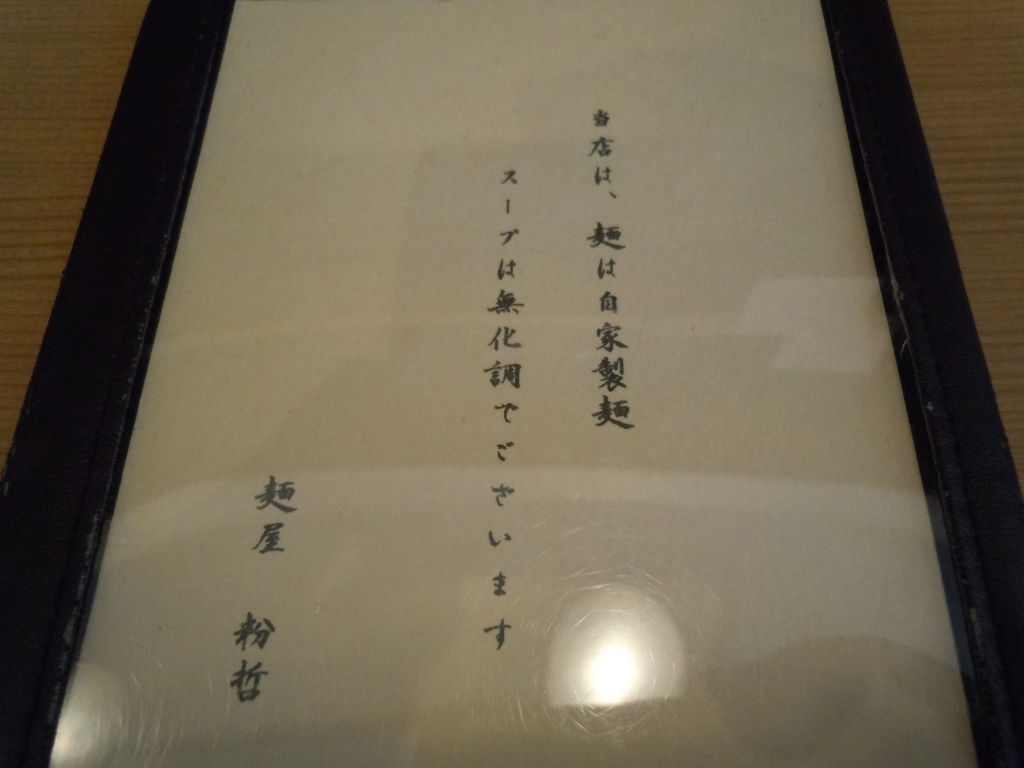 当店は、麺は自家製麺
スープは無化調でございます
麺屋 粉哲